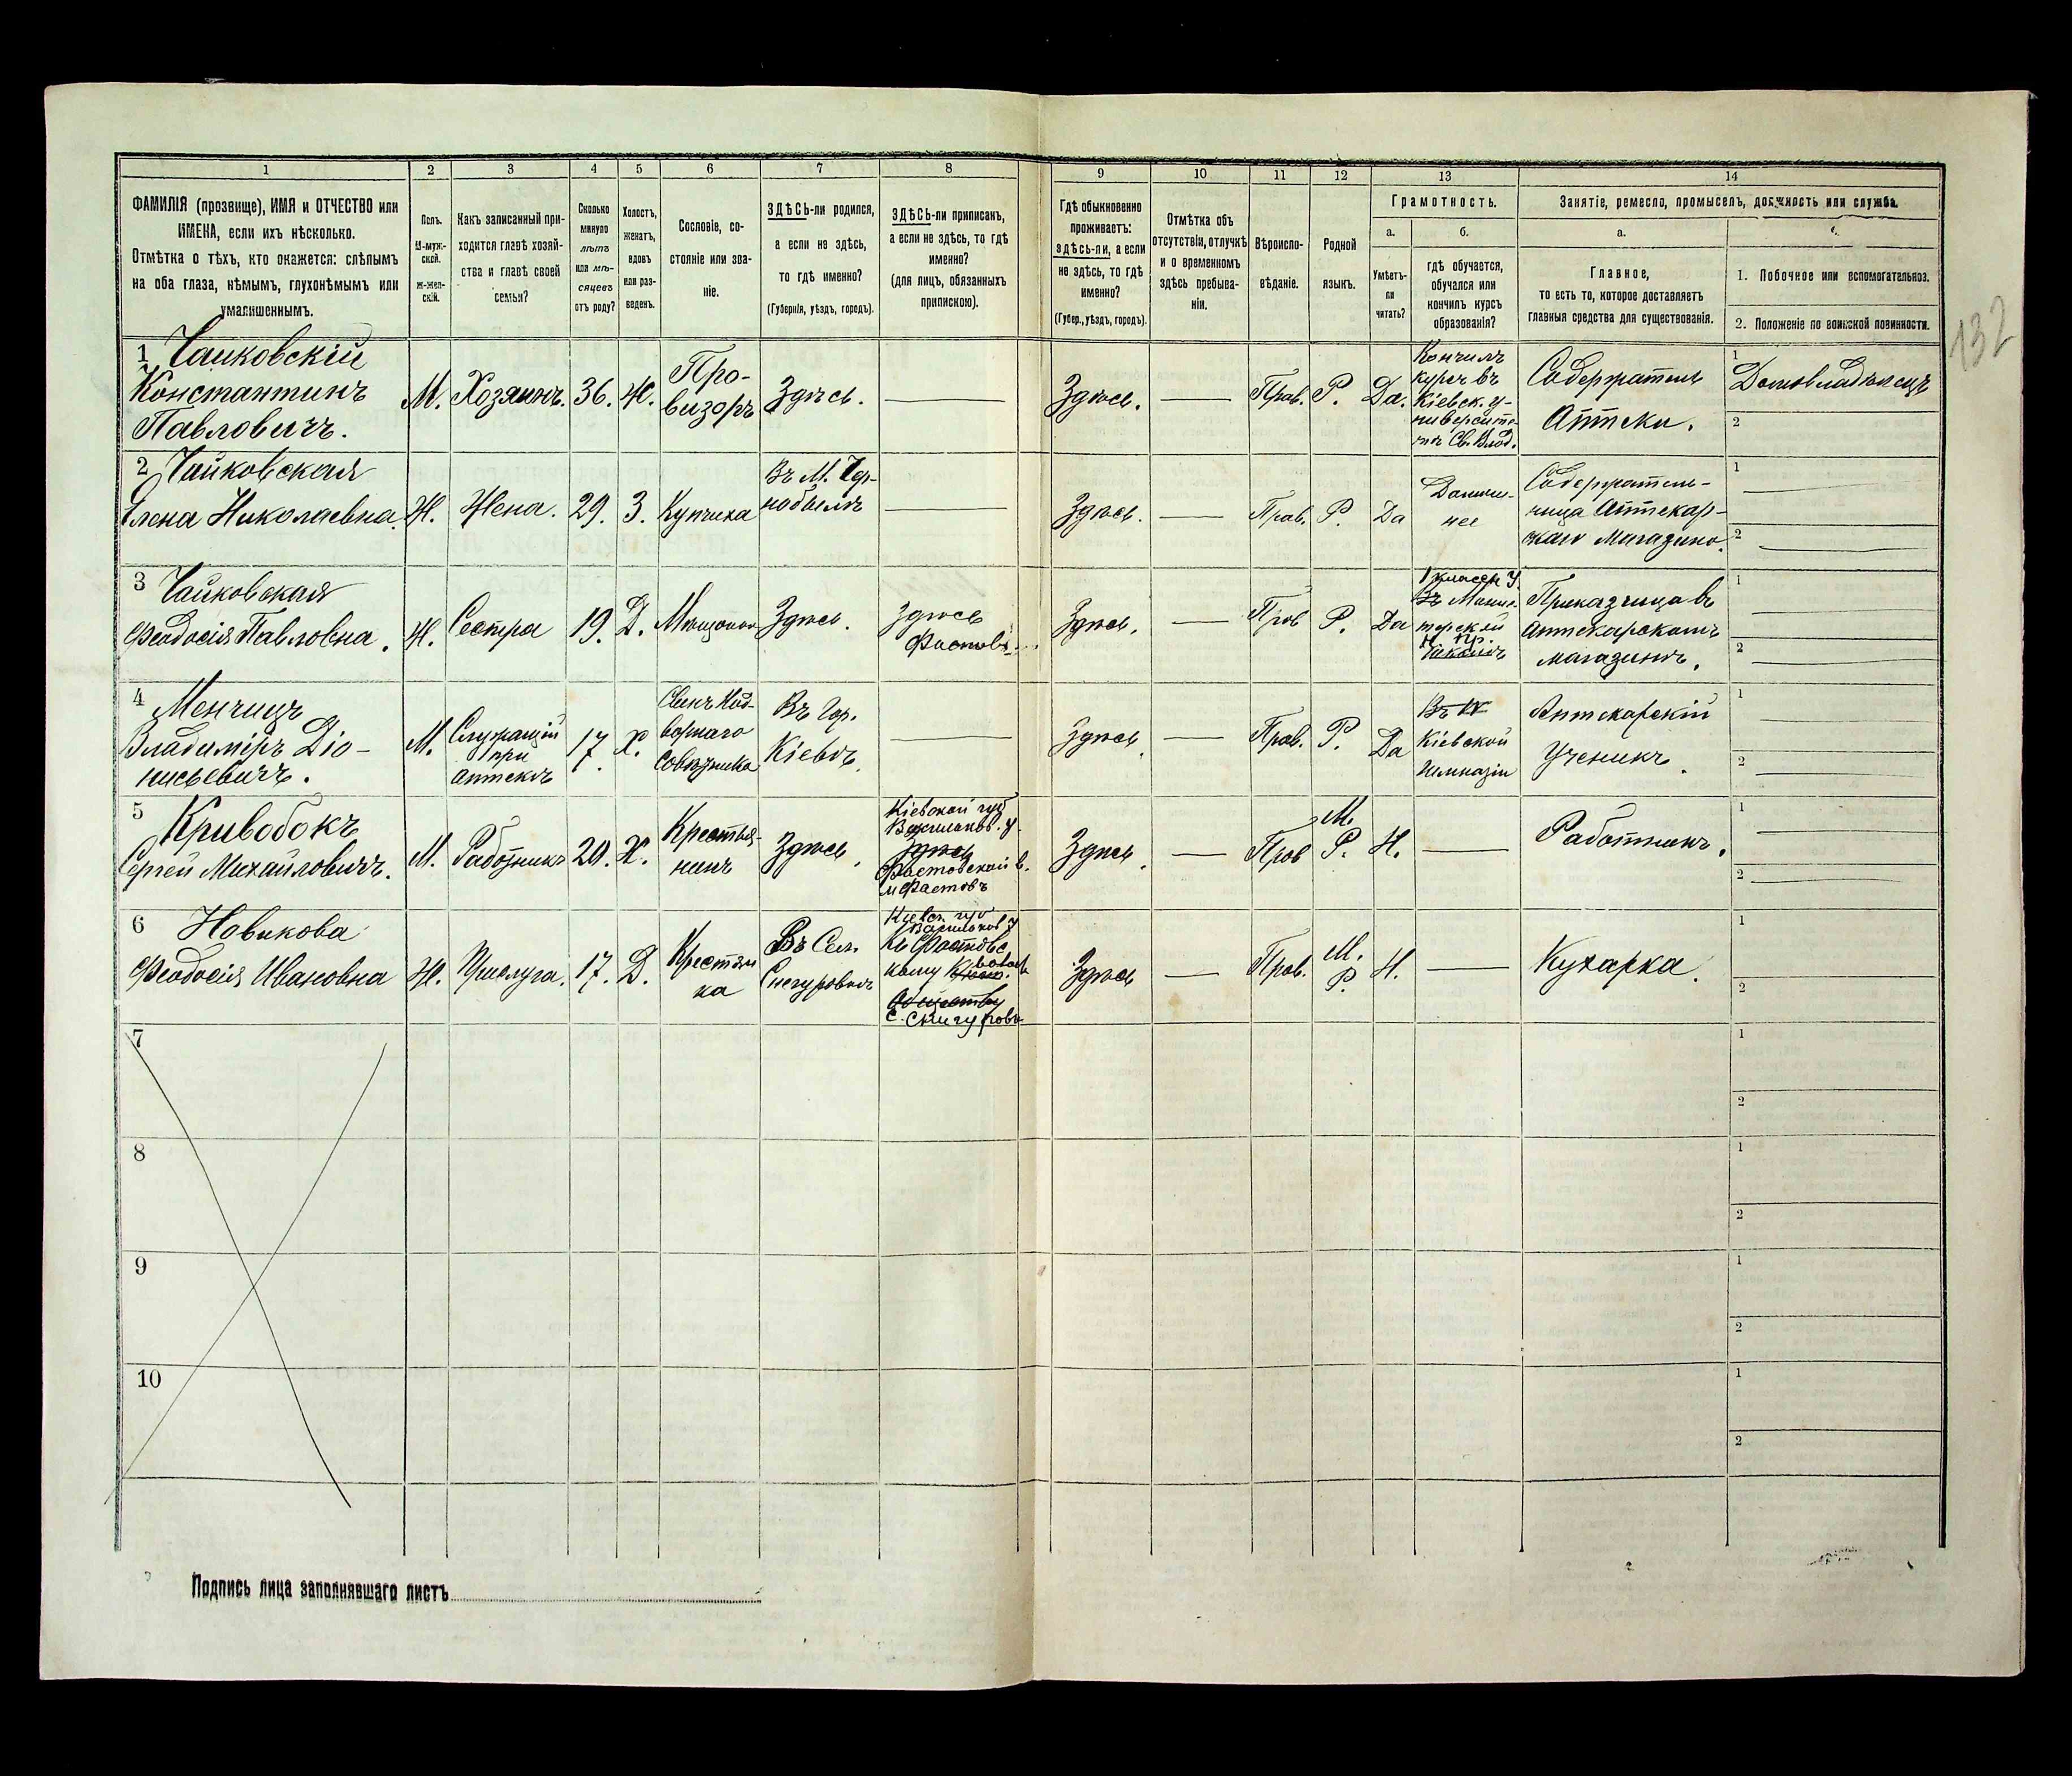 1
2
3
4
5
6
7
8
9
10
11
12
13
14
ФАМИЛІЯ (прозвище), ИМЯ и ОТЧЕСТВО или
ИМЕНА, если ихъ нѣсколько.
Отмѣтка о тѣхъ, кто окажется: слѣпымъ
на оба глаза, нѣмымъ, глухонѣмымъ или
умалишеннымъ.
Полъ.
М-муж-
ской.
ж-жен-
скій.
Какъ записанный при-
ходится главѣ хозяй-
ства и главѣ своей
семьи?
Сколько
минуло
лѣтъ
или мѣ-
сяцевъ
отъ роду?
Холостъ,
женатъ,
вдовъ
или раз-
веденъ.
Сословіе, со-
стояніе или зва-
ніе.
ЗДѢСЬ-ли родился,
а если не здѣсь,
то гдѣ именно?
(Губернія, уѣздъ, городъ).
ЗДѢСЬ-ли приписанъ,
а если не здѣсь, то гдѣ
именно?
(для лицъ, обязанныхъ
припискою).
Гдѣ обыкновенно
проживаетъ:
здѣсь-ли, а если
не здѣсь, то гдѣ
именно?
(Губер., уѣздъ, городъ).
Отмѣтка объ
отсутствіи, отлучкѣ
и о временномъ
здѣсь пребыва-
ніи.
Вѣроиспо-
вѣданіе.
Родной
языкъ.
Грамотность.
а.
Умѣетъ-
ли
читать?
б.
гдѣ обучается,
обучался или
кончилъ курсъ
образованія?
Занятіе, ремесло, промыселъ, должность или служба.
а.
Главное,
то есть то, которое доставляетъ
главныя средства для существованія.
1. Побочное или вспомогательное.
2. Положеніе по воинской повинности.
132
1 Чайковскій
Константинъ
Павловичъ.
М.
Хозяинъ.
36.
Ж.
Про-
визоръ
Здѣсь.
Здѣсь.
Прав.
Р.
Да.
Кончилъ
курсъ въ
Кіевск. у-
ниверсите-
тѣ Св. Влад.
Содержатель
Аптеки.
1
Домовладѣлецъ
2
2 Чайковская
Елена Николаевна.
Ж.
Жена.
29.
З.
Купчиха
Въ М. Чер-
нобылѣ
Здѣсь.
Прав.
Р.
Да
Домаш-
нее
Содержатель-
ница Аптекар-
скаго Магазина.
1
2
3 Чайковская
Феодосія Павловна.
Ж.
Сестра
19.
Д.
Мѣщанка
Здѣсь.
Здѣсь
Фастовѣ
Здѣсь.
Прав
Р.
Да
Приказчица въ
Аптекарскомъ
магазинѣ.
1
2
4 Менчицъ
Владиміръ Діо-
нисьевичъ.
М.
Служащій
при
аптекѣ
17.
Х.
Сынъ Над-
ворнаго
Совѣтника
Въ Гор.
Кіевѣ.
Здѣсь.
Прав.
Р.
Да
Въ IV
Кіевской
Гимназіи
Аптекарскій
Ученикъ.
1
2
5 Кривобокъ
Сергей Михайловичъ.
М.
Работникъ
20.
Х.
Крестья-
нинъ
Здѣсь.
Кіевской губ
Васильков. у.
Здѣсь
Фастовской в.
м Фастовъ
Здѣсь.
Прав
М.
Р.
Н.
Работникъ.
1
2
6 Новикова
Феодосія Ивановна
Ж.
Прислуга.
17.
Д.
Крестьян
ка
Въ Сел.
Снегуровкѣ
Кіевск. губ
Васильков у
Къ Фастовс
кому
Обществу
с. Снигуровк
Здѣсь
Прав.
М.
Р.
Н.
Кухарка.
1
2
7
1
2
8
1
2
9
1
2
10
1
2
Подпись лица заполнявшаго листъ